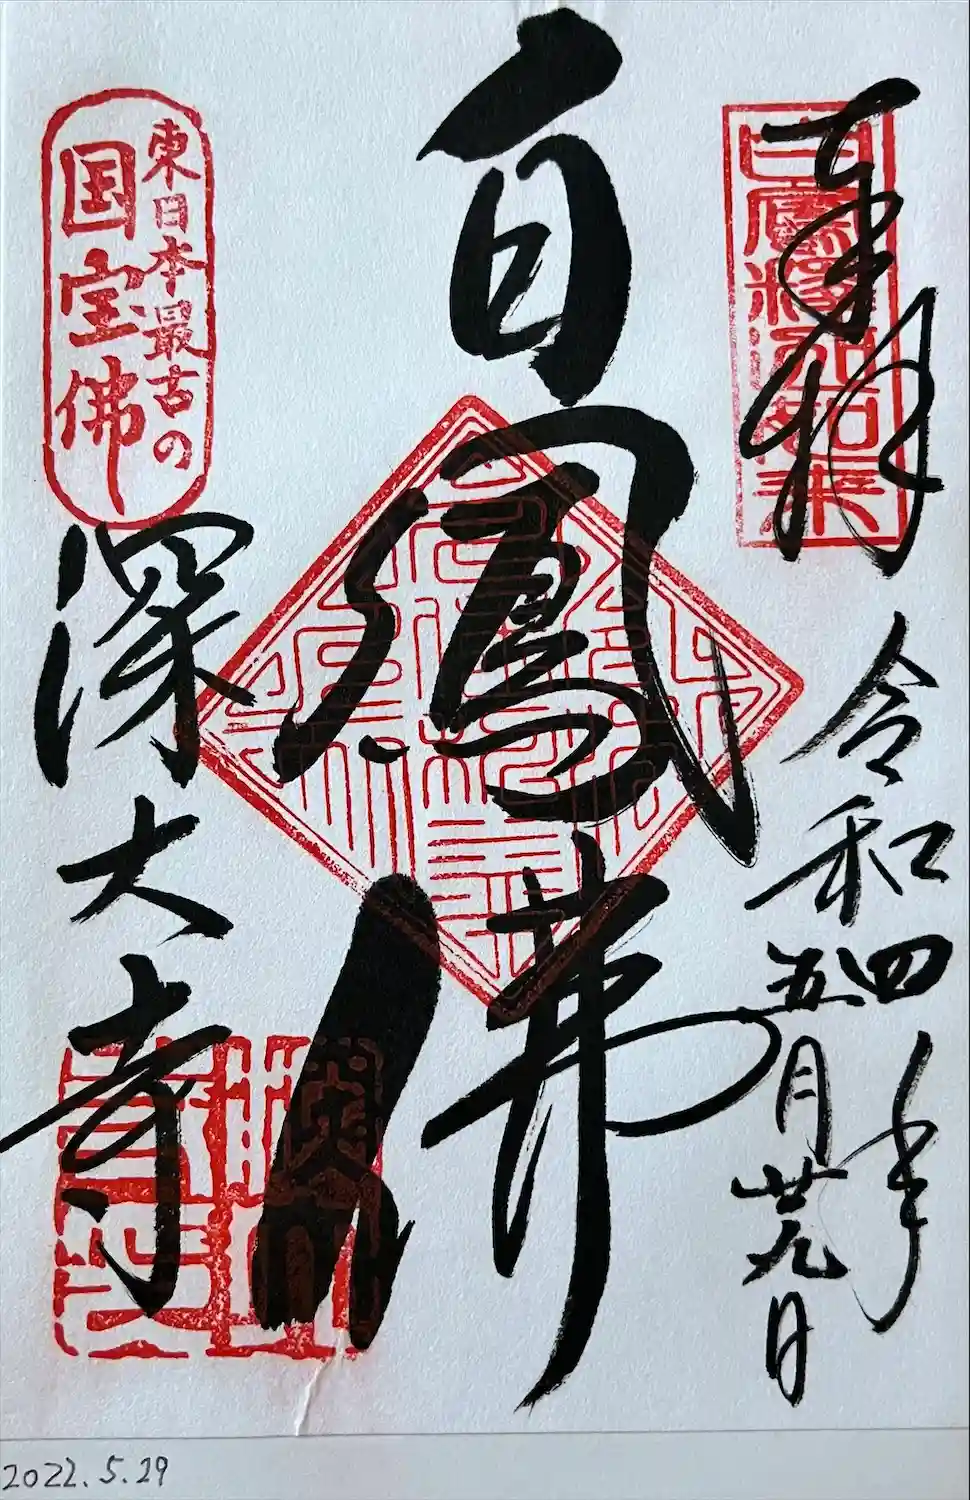 奉拝
令和四年
五月廿九日
白鳳釈迦如来
白鳳佛
東日本最古の
国宝佛
深大寺
2022.5.29